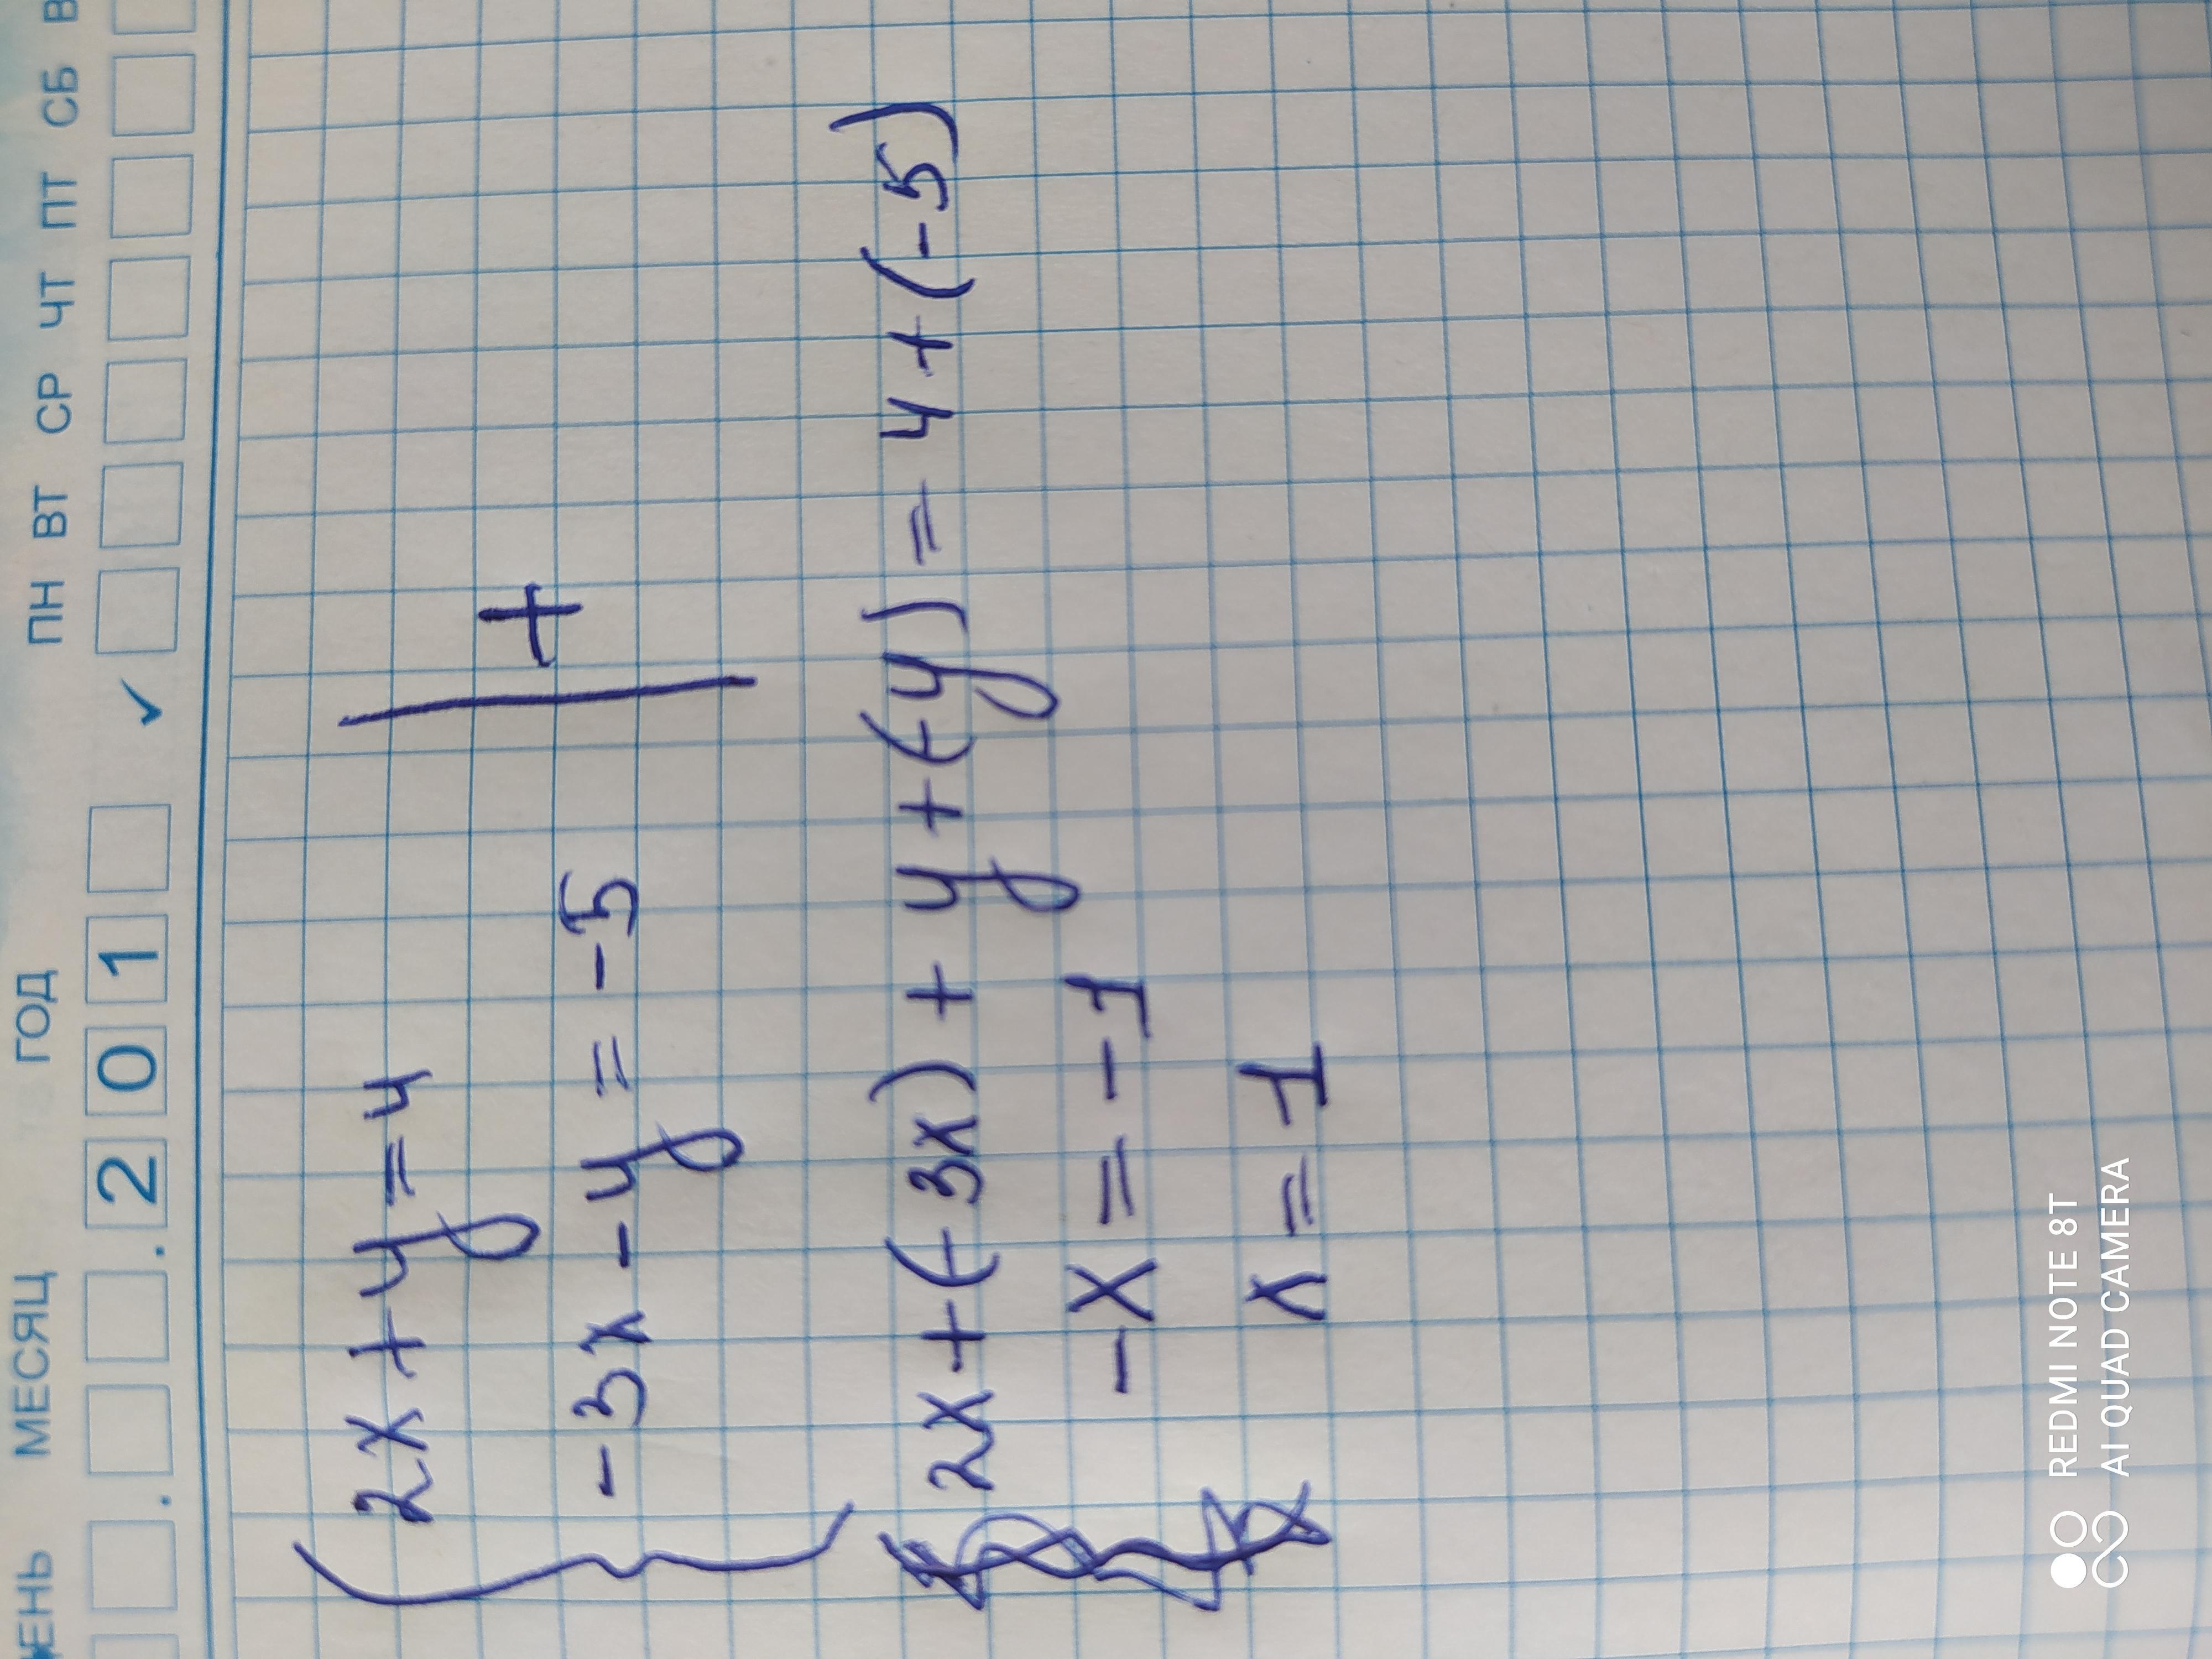 ДЕНЬ МЕСЯЦ ГОД ПН ВТ СР ЧТ ПТ СБ В
. . 2 0 1 ✓
2x + y = 4
-3x - y = -5
+
2x + (-3x) + y + (-y) = 4 + (-5)
-x = -1
x = 1
REDMI NOTE 8T
AI QUAD CAMERA